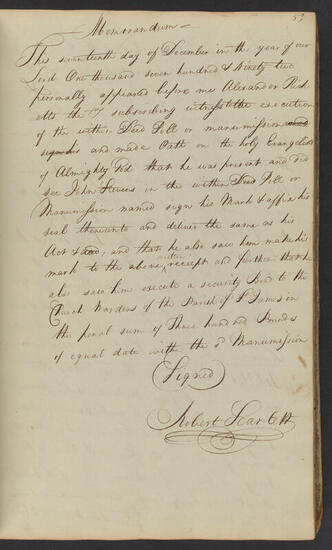 59
Memorandum —
This seventeenth day of December in the year of our
Lord One thousand seven hundred & Ninety two
personally appeared before me Alexander Rick
etts the subscribing witness to the execution
of the within Deed Poll or manumission and
signhis and made Oath on the holy Evangelists
of Almighty God that he was present and did
see John Stevens in the within Deed Poll or
Manumission named sign his Mark & affix his
seal thereunto and deliver the same as his
Act & and that he also saw him make his
mark to the above written receipt and further that he
also saw him execute a security Bond to the
Church Wardens of the Parish of St James in
the penal sum of Three hundred Pounds
of equal date with the sd Manumission
Signed
Robert Scarlett